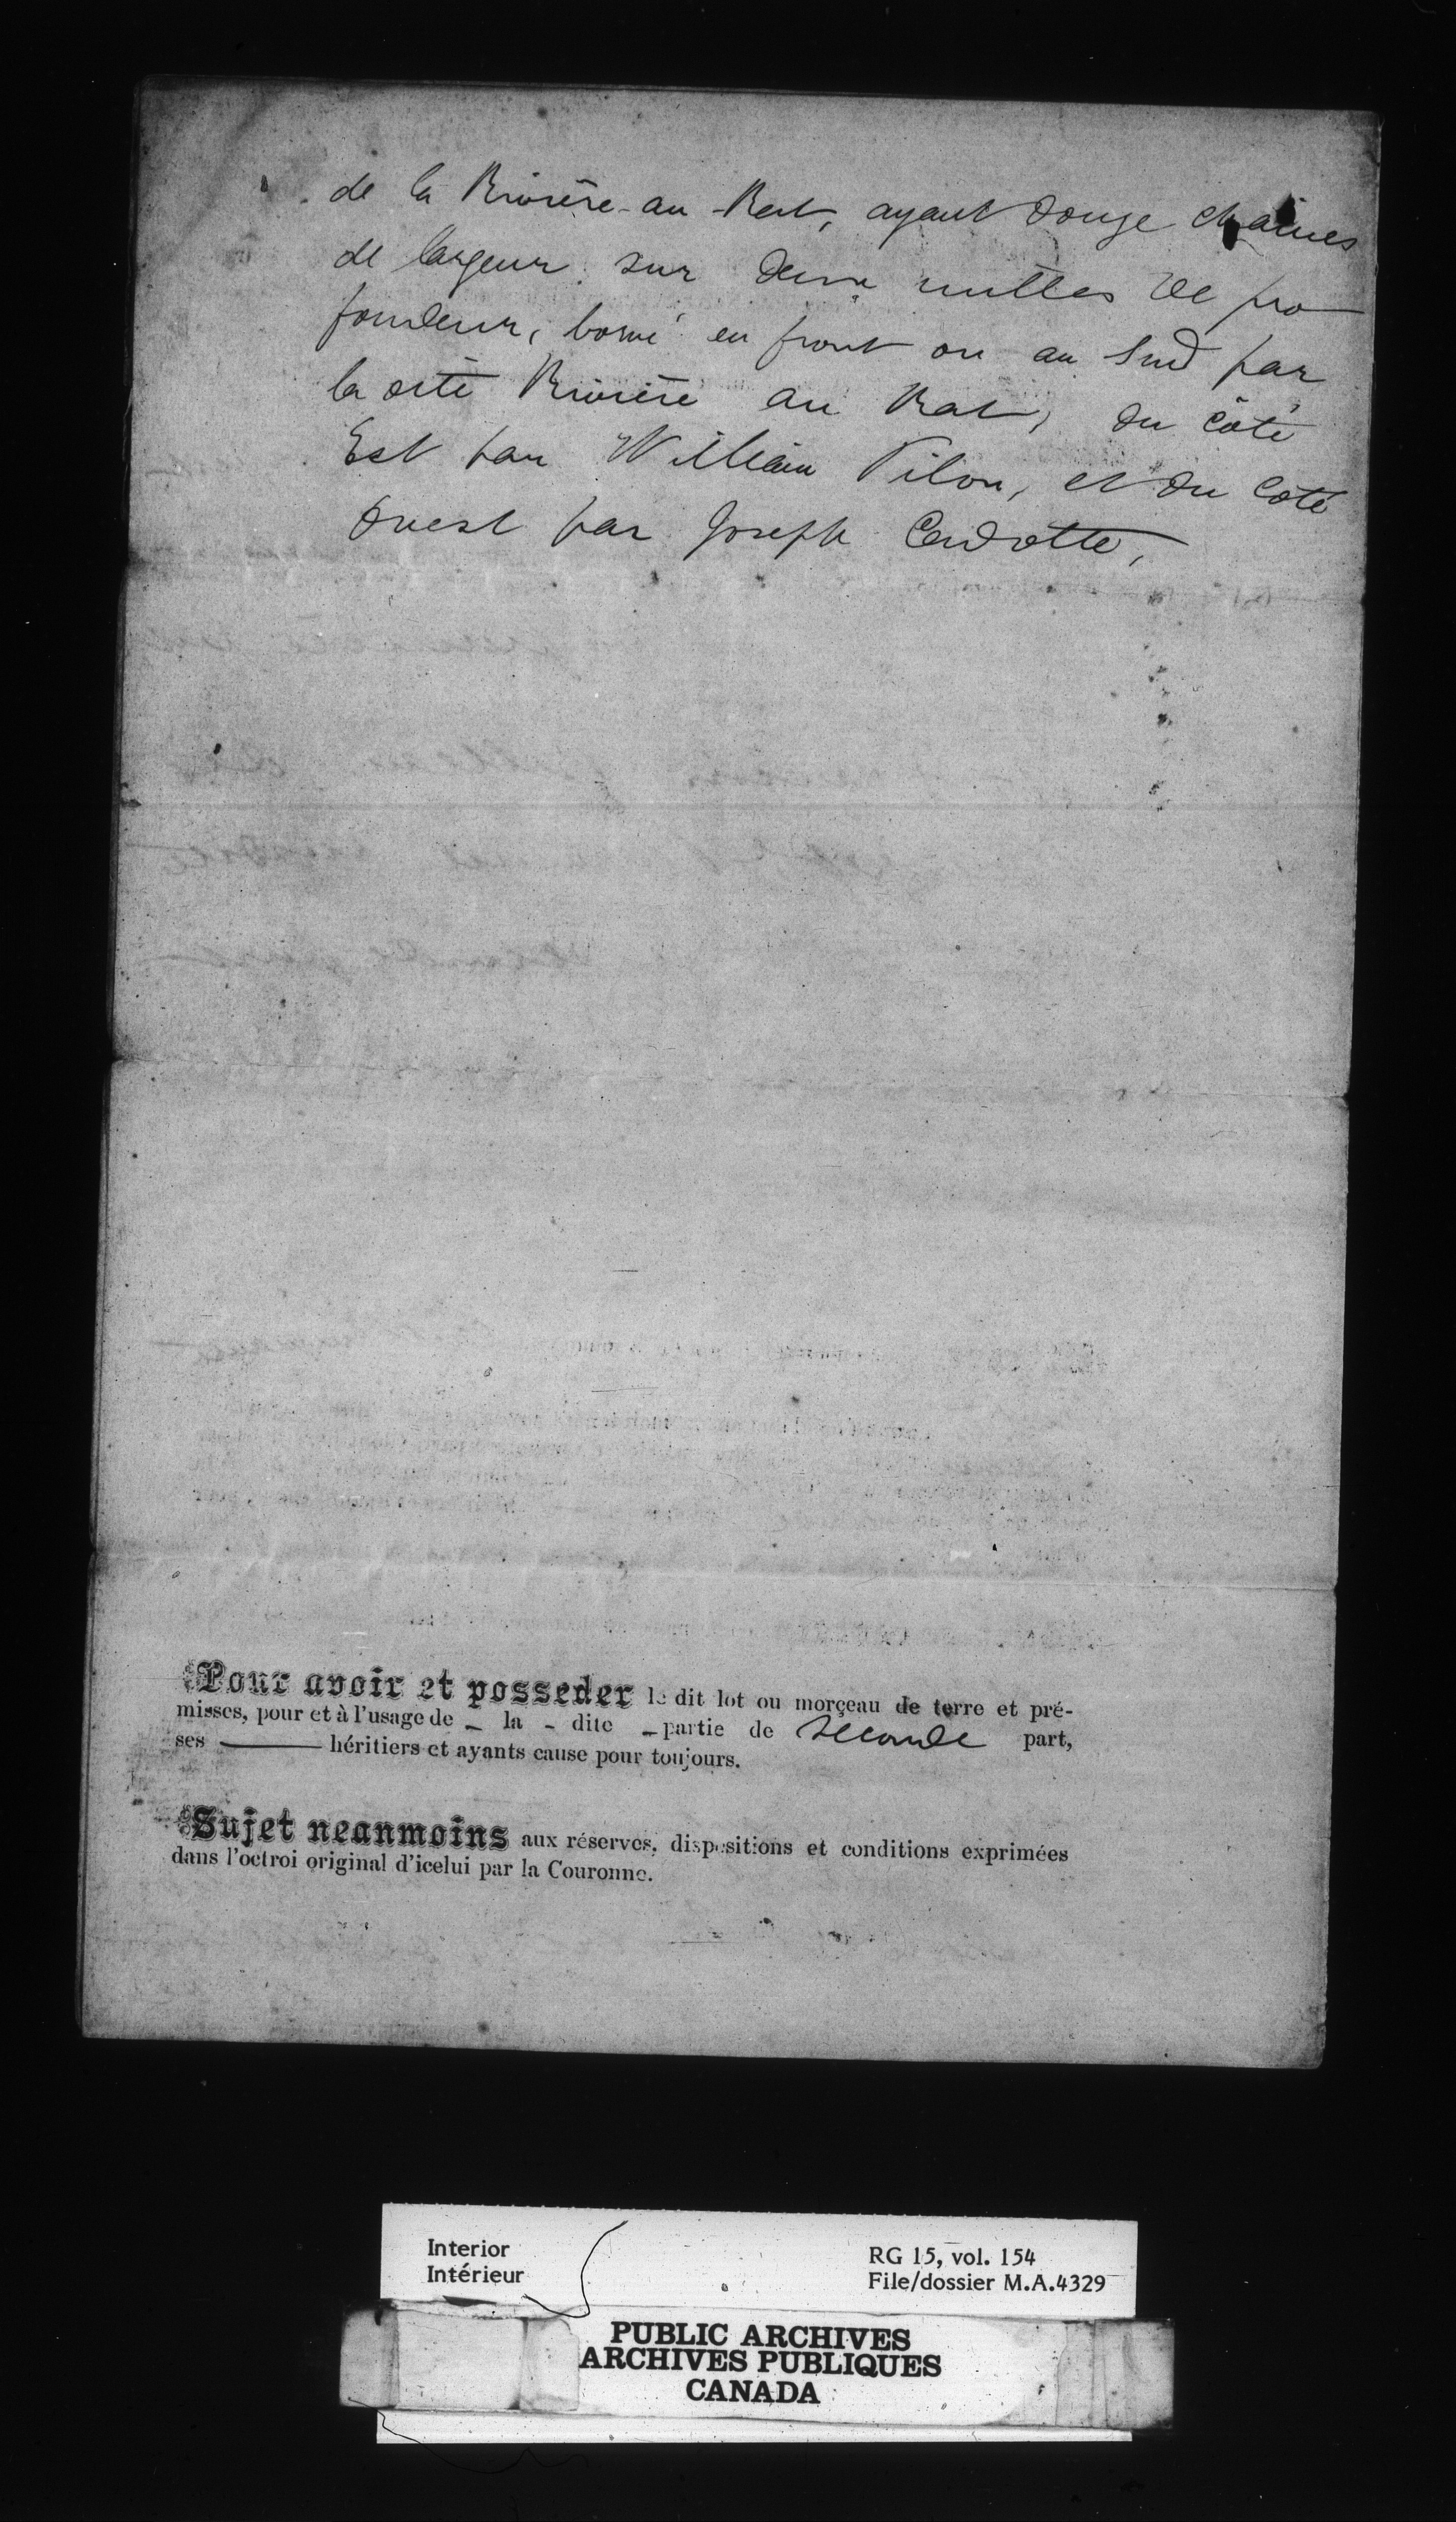 de la Rivière-au-Rat, ayant douze chaînes
de largeur sur deux milles de pro
fondeur, borné en front ou au Sud par
la dite Rivière au Rat, du côté
Est par William Pilon, et du Côté
Ouest par Joseph Cadotte,
Pour avoir et posseder le dit lot ou morçeau de terre et pré-
misses, pour et à l'usage de _ la - dite _ partie de seconde part,
ses ——— héritiers et ayants cause pour toujours.
Sujet neanmoins aux réserves, dispositions et conditions exprimées
dans l'octroi original d'icelui par la Couronne.
Interior
Intérieur
RG 15, vol. 154
File/dossier M.A.4329
PUBLIC ARCHIVES
ARCHIVES PUBLIQUES
CANADA